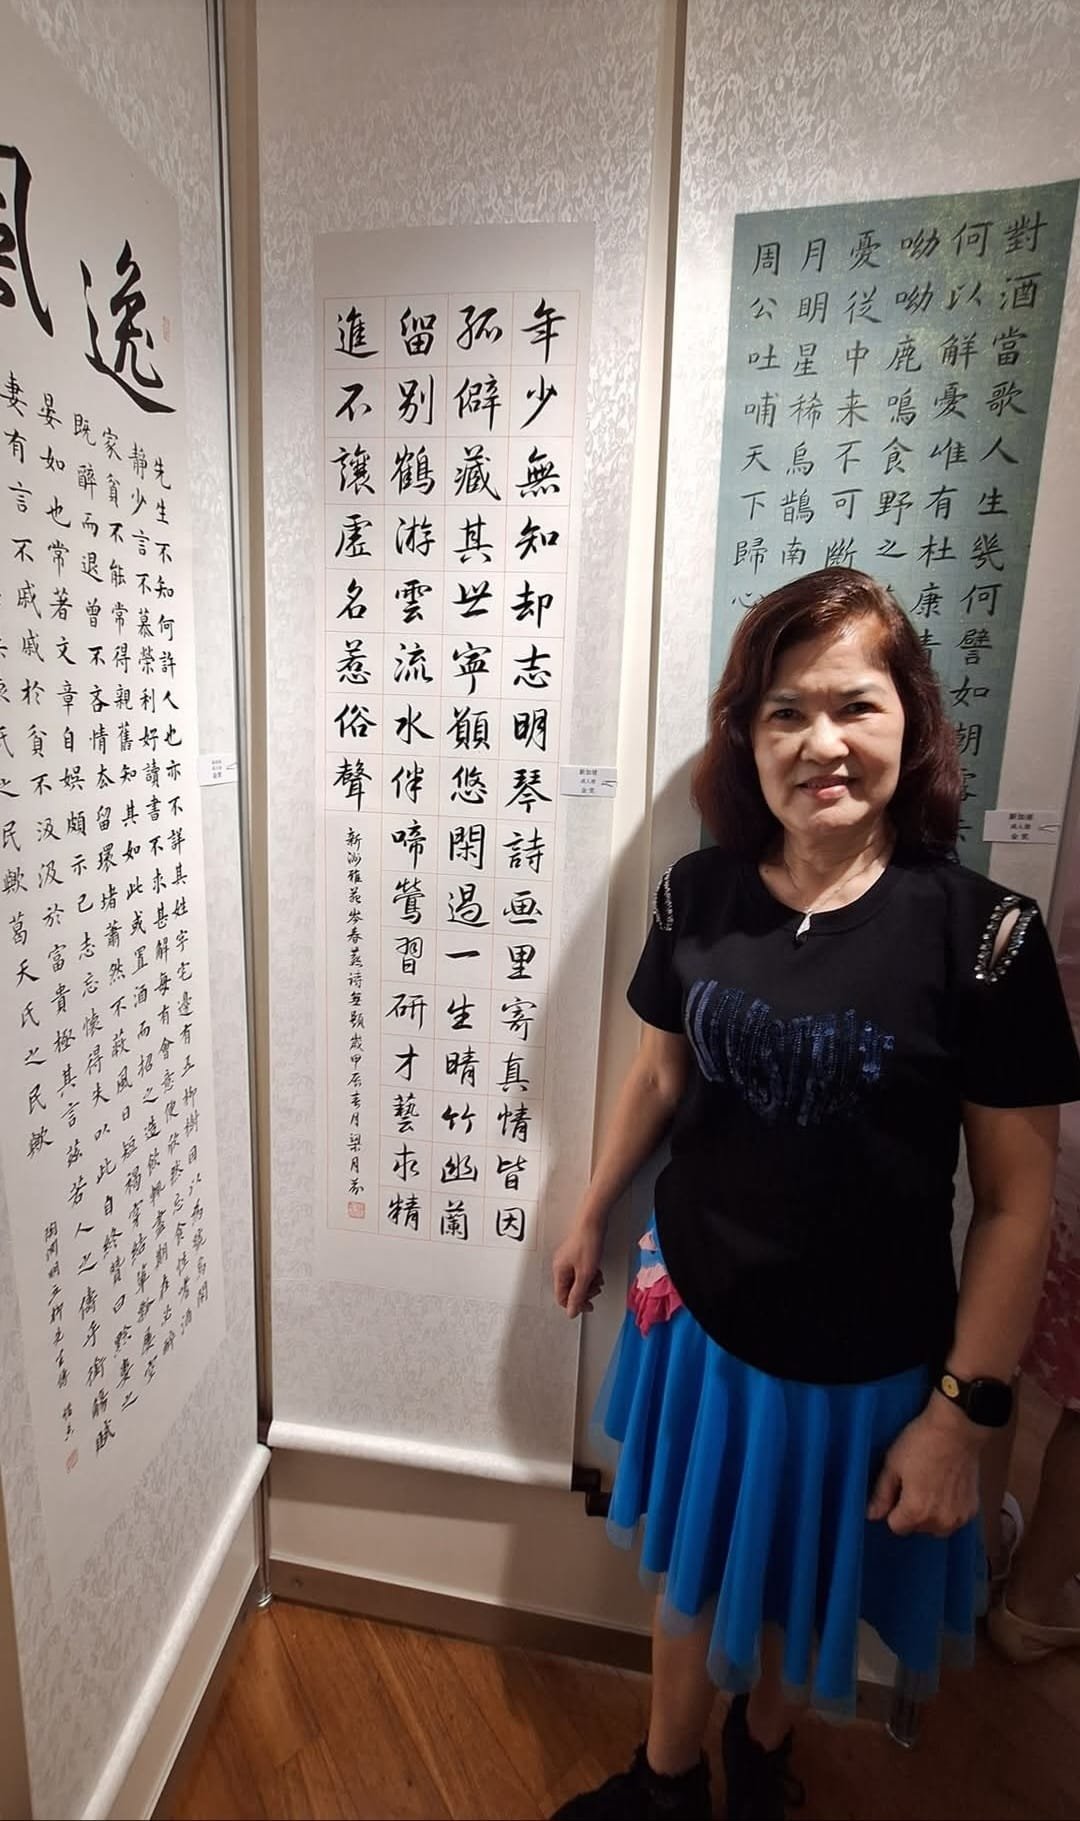 對酒當歌人生幾何譬如朝露去
何以解憂唯有杜康
呦呦鹿鳴食野之
憂從中来不可斷
月明星稀烏鵲南
周公吐哺天下歸心
新加坡
成人組
金奖
年少無知却志明琴詩画里寄真情皆因
孤僻藏其世寧願悠閑過一生晴竹幽蘭
留別鶴游雲流水伴啼鶯習研才藝求精
進不讓虛名惹俗聲
新洲雅苑岑春燕詩無題歲甲辰春月梁月芬
新加坡
成人組
金奖
逸
先生不知何許人也亦不詳其姓字宅邊有五柳樹因以為號焉閑
靜少言不慕榮利好讀書不求甚解每有會意便欣然忘食性嗜酒
家貧不能常得親舊知其如此或置酒而招之造飲輒盡期在必醉
既醉而退曾不吝情去留環堵蕭然不蔽風日短褐穿結簞瓢屢空
晏如也常著文章自娛頗示己志忘懷得失以此自終贊曰黔婁之
妻有言不戚戚於貧不汲汲於富貴極其言茲若人之儔乎銜觴賦
氏之民歟葛天氏之民歟
陶淵明五柳先生傳
金奖